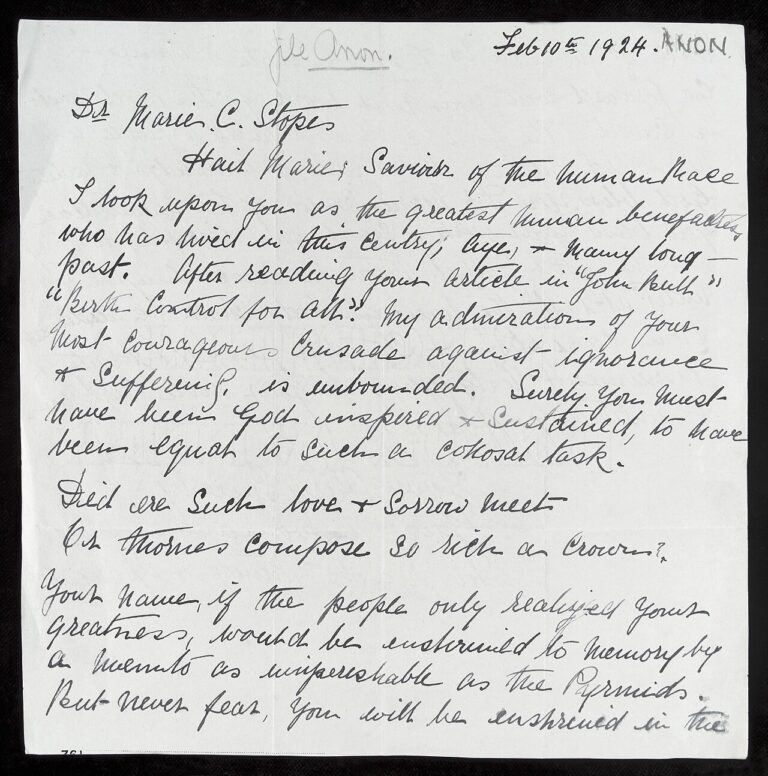 file Anon.
Feb 10th 1924. ANON.
Dr Marie. C. Stopes
Hail Marie; Saviour of the human Race
I look upon you as the greatest human benefactress
who has lived in this centry; aye, + many long —
past. After reading your article in "John Bull"
"Birth Control for all." My admiration of your
most courageous Crusade against ignorance
+ Suffering, is unbounded. Surely you must
have been God inspired + Sustained, to have
been equal to such a collosal task.
Did ere Such love + Sorrow meet
Or thornes compose so rich a Crown?.
Your name, if the people only realized your
greatness, would be enshrined to memory by
a memto as unpereshable as the Pyrmids.
But never fear, you will be enshrined in the